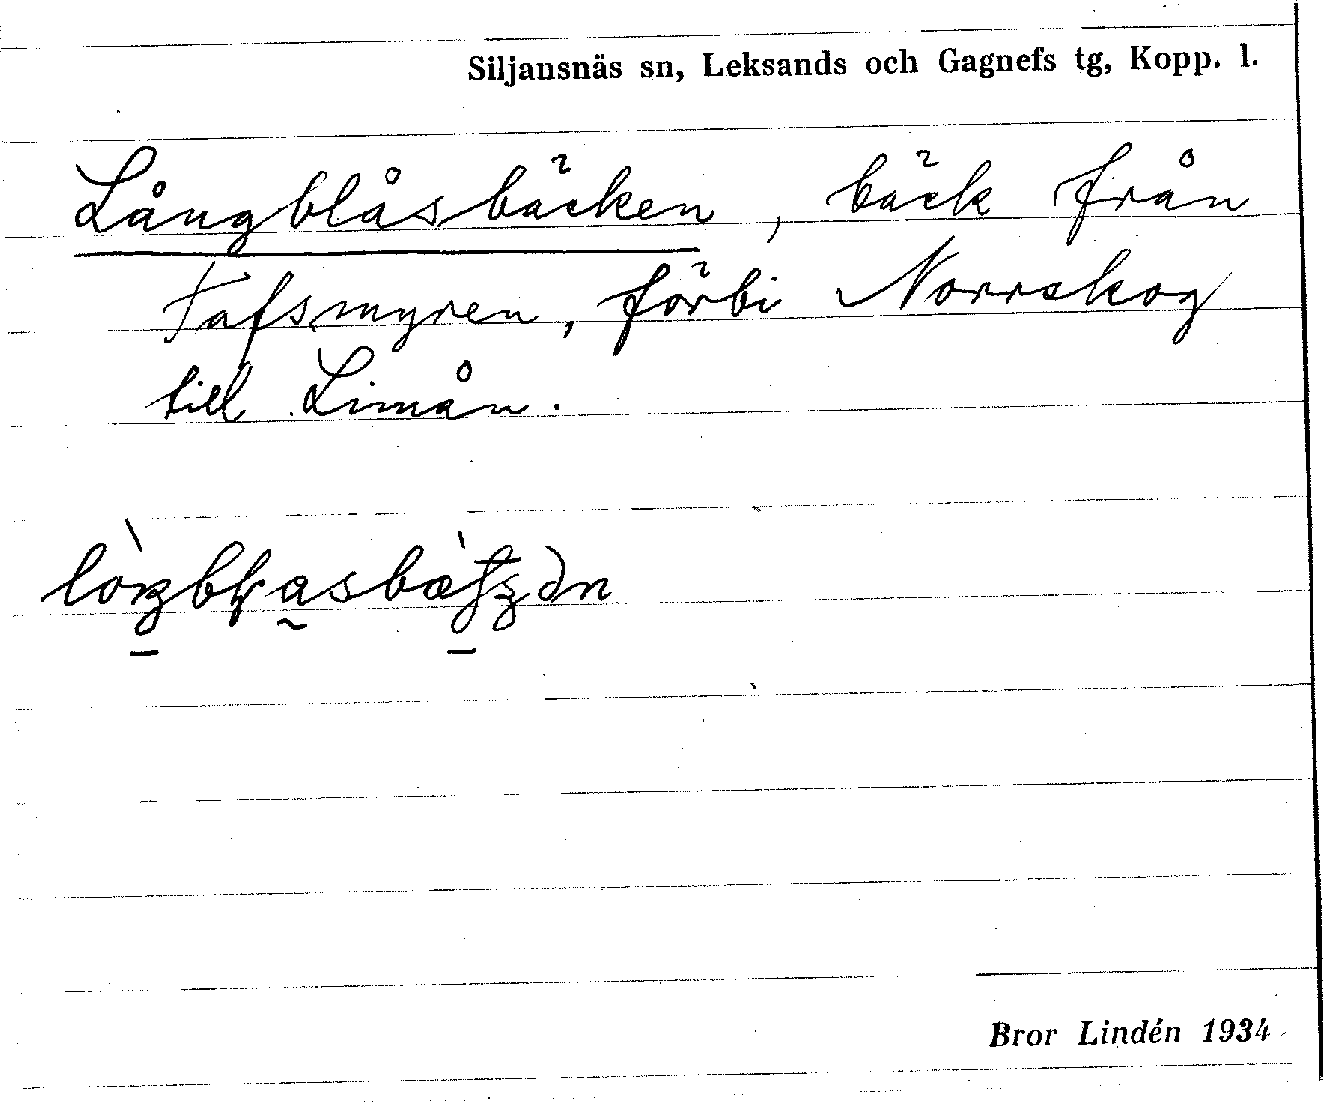 Siljansnäs sn, Leksands och Gagnefs tg, Kopp. l.
Långblåsbäcken, bäck från
Tafsmyren, förbi Norrskog
till Limån.
Bror Lindén 1934